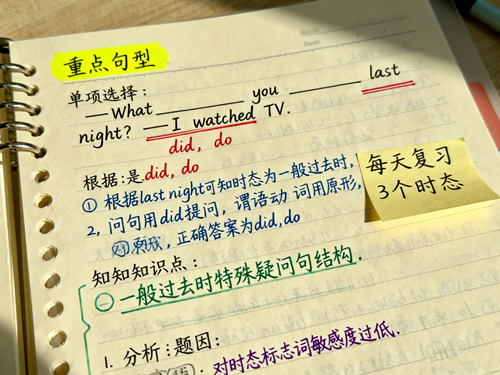 重点句型
单项选择：
—What ______ you ______ last
night? —I watched TV.
did, do
根据:是did, do
① 根据last night可知时态为一般过去时,
2, 问句用did提问，谓语动 词用原形,
故, 正确答案为did,do
每天复习
3个时态
知知知识点：
㊀ 一般过去时特殊疑问句结构.
1. 分析:题因:
对时态标志词敏感度过低.